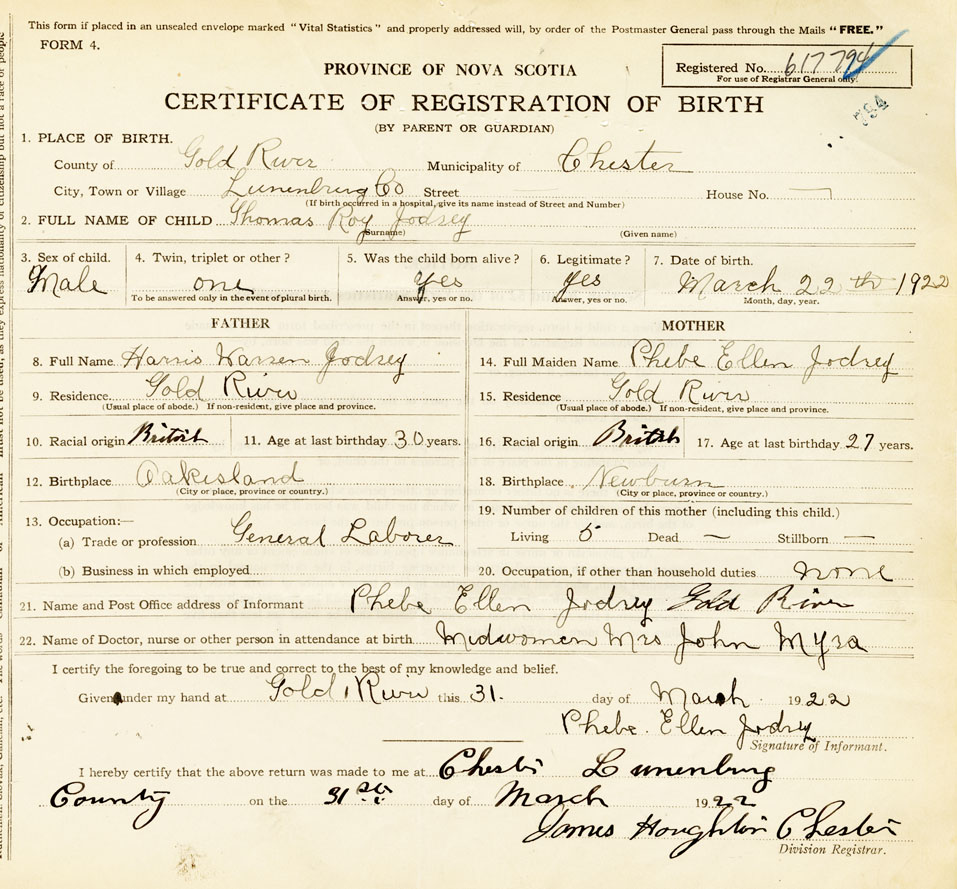 This form if placed in an unsealed envelope marked "Vital Statistics" and properly addressed will, by order of the Postmaster General pass through the Mails "FREE."
FORM 4.
Registered No. 617794
For use of Registrar General only.
784
PROVINCE OF NOVA SCOTIA
CERTIFICATE OF REGISTRATION OF BIRTH
(BY PARENT OR GUARDIAN)
1. PLACE OF BIRTH.
County of Gold River Municipality of Chester
City, Town or Village Lunenburg Co Street — House No. —
(If birth occurred in a hospital, give its name instead of Street and Number)
2. FULL NAME OF CHILD Thomas Roy Jodrey
(Surname) (Given name)
3. Sex of child. 4. Twin, triplet or other? 5. Was the child born alive? 6. Legitimate? 7. Date of birth.
Male one yes yes March 22 th 1922
To be answered only in the event of plural birth. Answer, yes or no. Answer, yes or no. Month, day, year.
FATHER
8. Full Name Harris Warren Jodrey
9. Residence Gold River
(Usual place of abode.) If non-resident, give place and province.
10. Racial origin British 11. Age at last birthday 30 years.
12. Birthplace Oakesland
(City or place, province or country.)
13. Occupation:—
(a) Trade or profession General Laborer
(b) Business in which employed
MOTHER
14. Full Maiden Name Phebe Ellen Jodrey
15. Residence Gold River
(Usual place of abode.) If non-resident, give place and province.
16. Racial origin British 17. Age at last birthday 27 years.
18. Birthplace Newburn
(City or place, province or country.)
19. Number of children of this mother (including this child.)
Living 5 Dead — Stillborn —
20. Occupation, if other than household duties none
21. Name and Post Office address of Informant Phebe Ellen Jodrey Gold River
22. Name of Doctor, nurse or other person in attendance at birth. Midwomen Mrs John Myra
I certify the foregoing to be true and correct to the best of my knowledge and belief.
Given under my hand at Gold River this 31. day of March 1922
Phebe. Ellen Jodrey
Signature of Informant.
I hereby certify that the above return was made to me at Chester Lunenburg
County on the 31st day of March 1922
James Houghton Chester
Division Registrar.